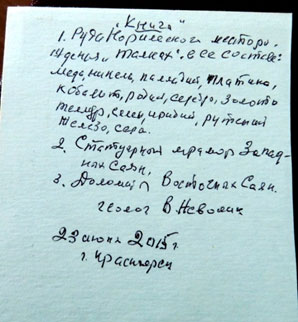 "Книга"
1. Руда Норильского место рож-
дения "Талнах". в ее составе:
медь, никель, палладий, платина,
кобальт, родий, серебро, золото
теллур, селен, иридий, рутений
железо, сера.
2. Статуарный мрамор Запад-
ная Саян,
3. Доломит Восточная Саян.
геолог В
23 июня 2015 г.
г. Красногорск